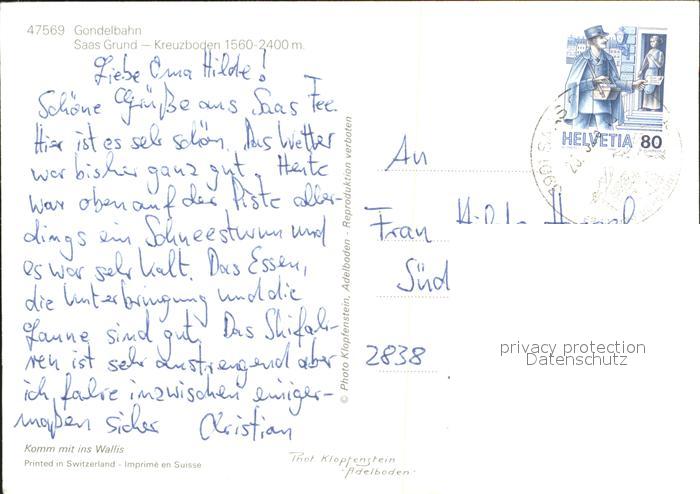 47569 Gondelbahn
Saas Grund – Kreuzboden 1560-2400 m.
Liebe Oma Hilde!
Schöne Grüße aus Saas Fee.
Hier ist es sehr schön. Das Wetter
war bisher ganz gut. Heute
war oben auf der Piste aller-
dings ein Schneesturm und
es war sehr kalt. Das Essen,
die Unterbringung und die
Laune sind gut. Das Skifah-
ren ist sehr anstrengend aber
ich fahre inzwischen einiger-
maßen sicher Christian
Komm mit ins Wallis
Printed in Switzerland - Imprimé en Suisse
© Photo Klopfenstein, Adelboden - Reproduktion verboten
Phot. Klopfenstein
-Adelboden-
HELVETIA 80
An
Frau Hilde
Süd
2838
privacy protection
Datenschutz